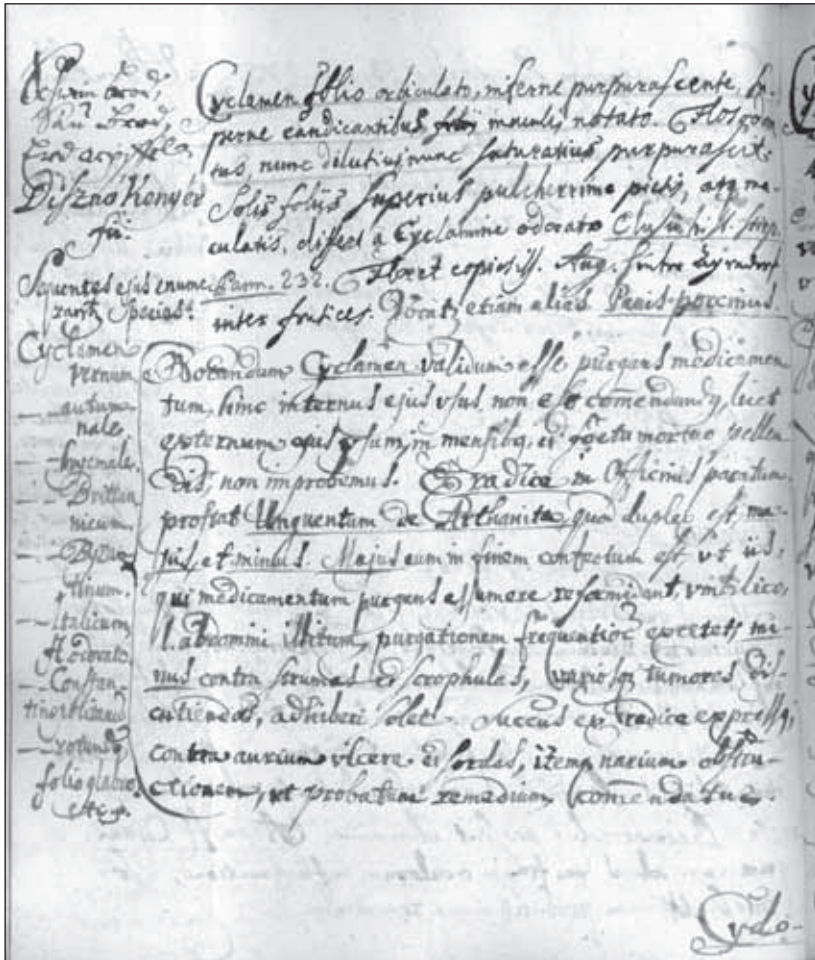 Disznó Kenyér
fű:
Sequentes ejus enume
rant Species:
Cyclamen
vernum
__ autum
nale,
__ hyemale.
__ Brittan
nicum.
__ Byzan
tinum.
__ Italicum
__ Constan
tinopolitanū
__ rotundo,
folio glabro.
Cyclamen folio orbiculato, inferne purpurascente, su-
perne candicantibus maculis notato. Flos
tus, nunc dilutius, nunc saturatius purpurascit.
Solis foliis superius pulcherrime pictis, atq ma-
culatis, differt a Cyclamine odorato Clusii hist. stirp.
Pann. 232. Floret copiosiss. Aug.
inter frutices. Vocat, etiam alias Panis porcinus.
Notandum Cyclamen validum esse purgans medicamen
tum, hinc internus ejus usus non est comendandq, licet
externum ejus usum, in mensibq, et foetu mortuo pellen
dis, non improbemus. Ex radice in Officinis paratum
prostat Unguentum de Arthanita, quod duplex est, ma-
jus, et minus. Majus eum in finem confectum est, vt iis,
qui medicamentum purgans assumere reformidant, vmbilico,
l. abdomini illitum, purgationem frequentior excitet, mi-
nus contra strumas et scrophulas, variosq tumores dis-
cutiendos, adhiberi solet. Succus ex radice expressq,
contra aurium vlcera et sordes, item narium obstru-
ctionem, vt probatum remedium comendatur.
Cyclo-